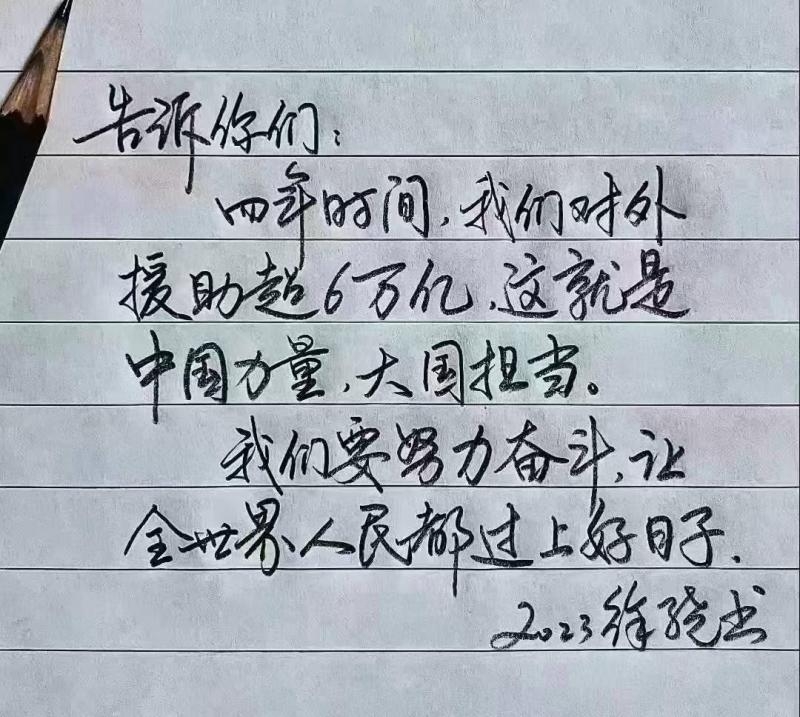 告诉你们：
四年时间，我们对外
援助超6万亿，这就是
中国力量，大国担当。
我们要努力奋斗，让
全世界人民都过上好日子．
2023徐晓书